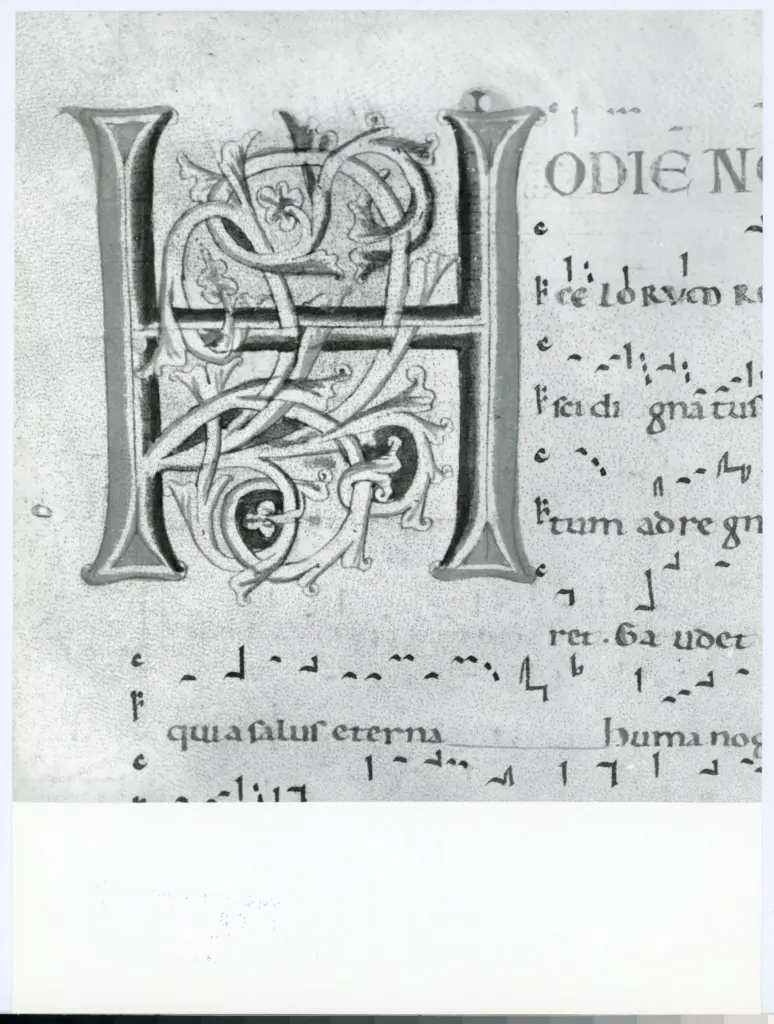 HODIE NO
celorum re
sci di gnatus
tum ad re gn
ret. Ga udet
quia salus eterna humano g